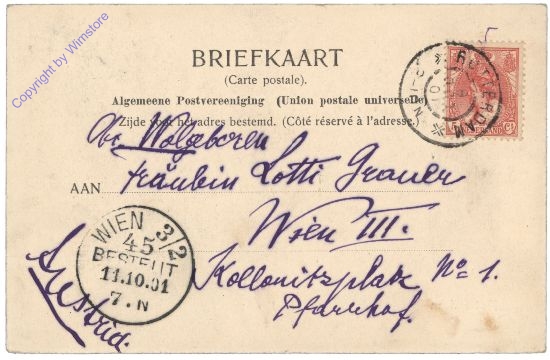 Copyright by Wimstore
BRIEFKAART
(Carte postale).
Algemeene Postvereeniging (Union postale universelle)
Zijde voor het adres bestemd. (Côté réservé à l'adresse.)
Wolgeboren
AAN Fräulein Lotti Grauer
Wien III.
Kollonitzplatz No 1.
Pfarrhof.
Austria.
WIEN 3/2
45
BESTELLT
11.10.01
7.N
ROTTERDAM